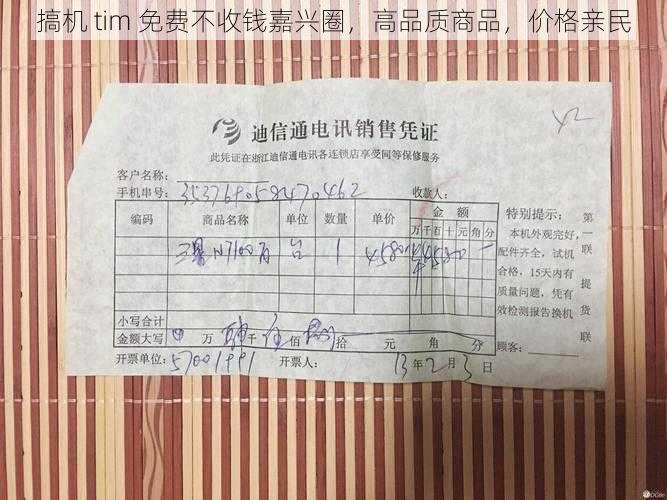 搞机 tim 免费不收钱嘉兴圈，高品质商品，价格亲民
迪信通电讯销售凭证
此凭证在浙江迪信通电讯各连锁店享受同等保修服务
客户名称：
手机串号：353769058470462 收款人：
编码 商品名称 单位 数量 单价 金额
万 千 百 十 元 角 分
三星N7100 台 1 4580
小写合计
金额大写 万 仟 佰 拾 元 角 分
开票单位：57001991 开票人： 13年2月3日
特别提示：
本机外观完好，
配件齐全，试机
合格，15天内有
质量问题，凭有
效检测报告换机
顾客：
第一联提货联